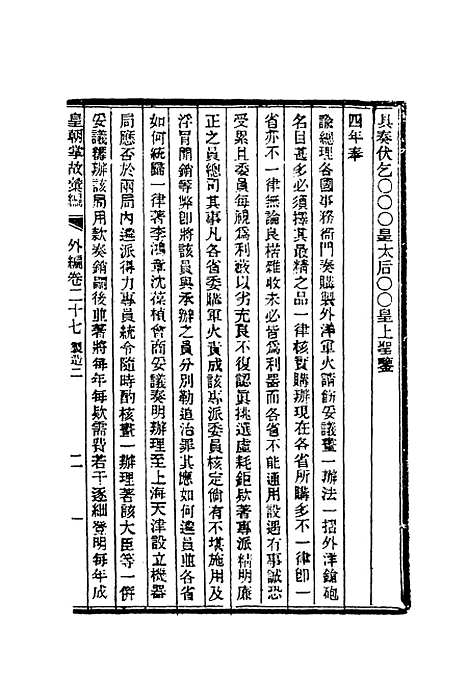 具奏伏乞〇〇〇皇太后〇〇皇上聖鑒
四年奉
諭總理各國事務衙門奏購製外洋軍火請飭妥議畫一辦法一摺外洋鎗砲
名目甚多必須擇其最精之品一律核實購辦現在各省所購多不一律卽一
省亦不一律無論良楛雜收未必皆爲利器而各省不能通用設遇有事誠恐
受累且委員每視爲利藪以劣充良不復認眞挑選虛耗鉅欵著專派精明廉
正之員總司其事凡各省委購軍火責成該專派委員核定倘有不堪施用及
浮冒開銷等弊卽將該員與承辦之員分別勒追治罪其應如何遴員並各省
如何統歸一律著李鴻章沈葆楨會商妥議奏明辦理至上海天津設立機器
局應否於兩局內遴派得力專員統令隨時酌核畫一辦理著該大臣等一併
妥議穪辦該局用款奏銷嗣後並著將每年每欵需費若干逐細登明每年成
皇朝掌故彙編 外編卷二十七 製造二 二 一